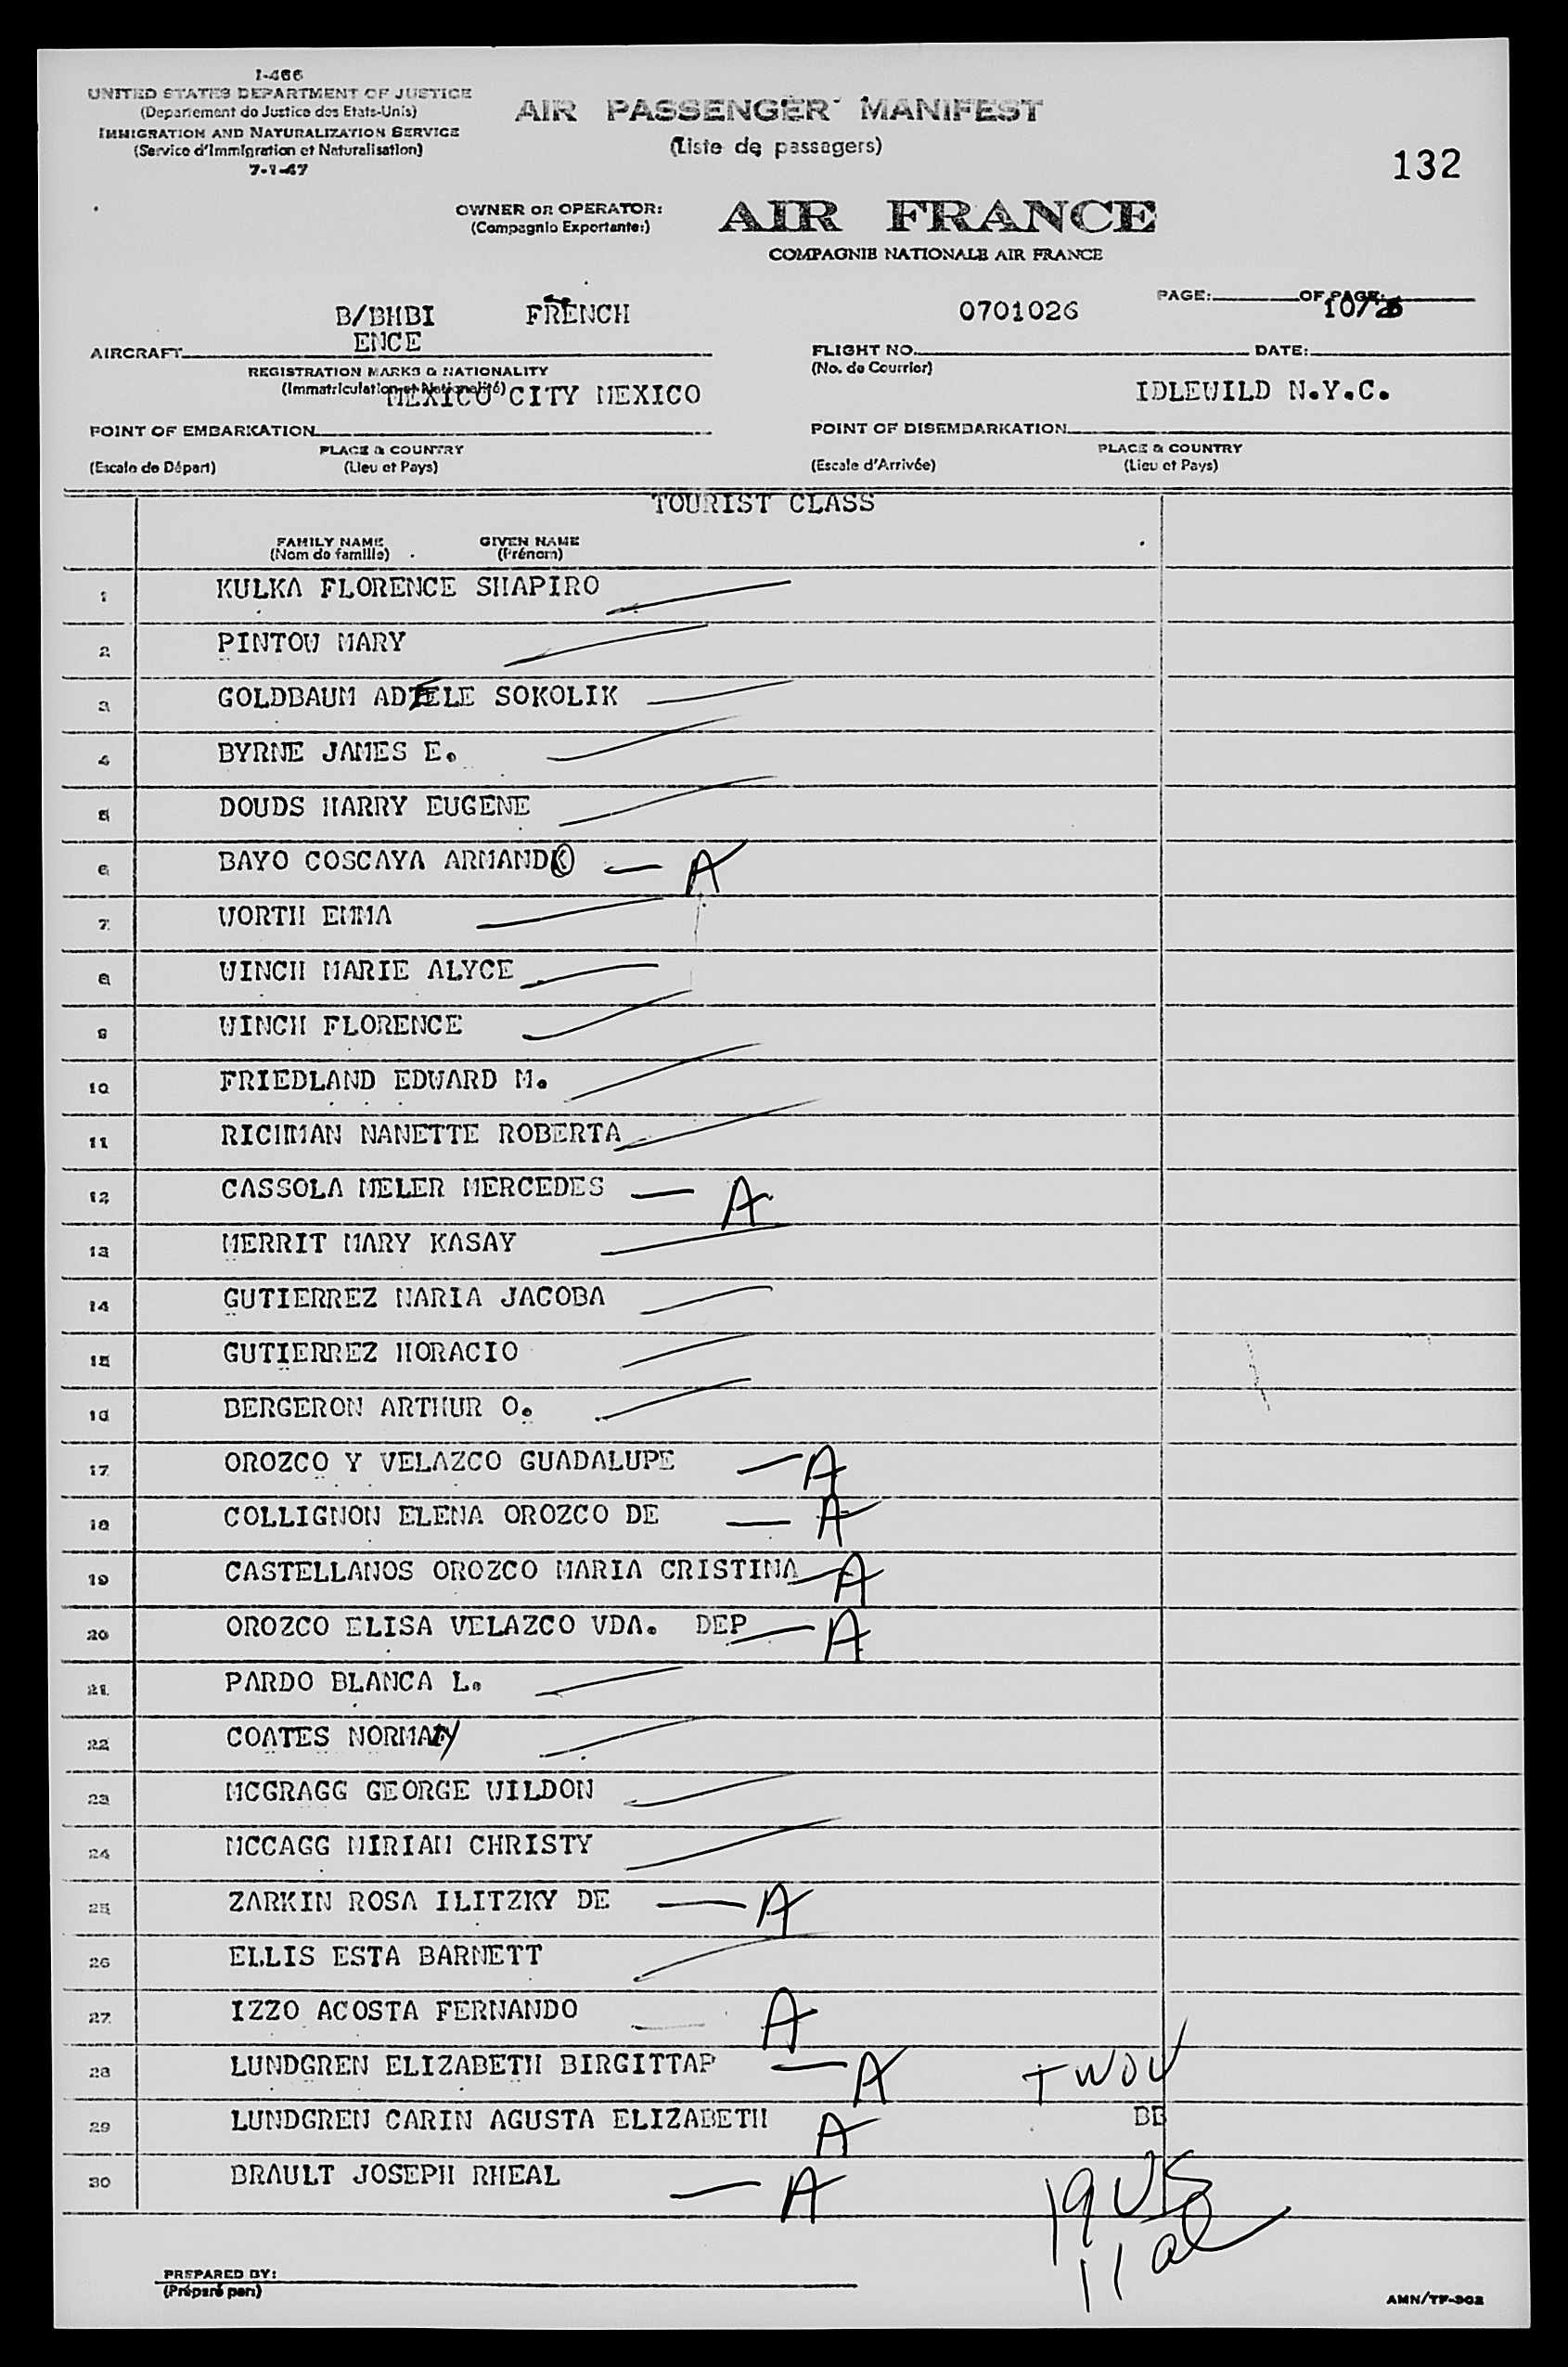 I-466
UNITED STATES DEPARTMENT OF JUSTICE
(Departement de Justice des Etats-Unis)
IMMIGRATION AND NATURALIZATION SERVICE
(Service d'Immigration et Naturalisation)
7-1-47
AIR PASSENGER MANIFEST
(Liste de passagers)
132
OWNER OR OPERATOR:
(Compagnie Exportante:)
AIR FRANCE
COMPAGNIE NATIONALE AIR FRANCE
PAGE: OF PAGE:
B/BHBI FRENCH 0701026 10/
ENCE
AIRCRAFT FLIGHT NO. DATE:
REGISTRATION MARKS & NATIONALITY (No. de Courrier)
(Immatriculation et Nationalité)
MEXICO CITY MEXICO IDLEWILD N.Y.C.
POINT OF EMBARKATION POINT OF DISEMBARKATION
PLACE & COUNTRY PLACE & COUNTRY
(Escale de Départ) (Lieu et Pays) (Escale d'Arrivée) (Lieu et Pays)
TOURIST CLASS
FAMILY NAME GIVEN NAME
(Nom de famille) (Prénom)
1 KULKA FLORENCE SHAPIRO
2 PINTOW MARY
3 GOLDBAUM ADELE SOKOLIK
4 BYRNE JAMES E.
5 DOUDS HARRY EUGENE
6 BAYO COSCAYA ARMANDO A
7 WORTH EMMA
8 WINCH MARIE ALYCE
9 WINCH FLORENCE
10 FRIEDLAND EDWARD M.
11 RICHMAN NANETTE ROBERTA
12 CASSOLA MELER MERCEDES A
13 MERRIT MARY KASAY
14 GUTIERREZ MARIA JACOBA
15 GUTIERREZ HORACIO
16 BERGERON ARTHUR O.
17 OROZCO Y VELAZCO GUADALUPE A
18 COLLIGNON ELENA OROZCO DE A
19 CASTELLANOS OROZCO MARIA CRISTINA A
20 OROZCO ELISA VELAZCO VDA. DEP A
21 PARDO BLANCA L.
22 COATES NORMAN
23 MCGRAGG GEORGE WILDON
24 MCCAGG MIRIAM CHRISTY
25 ZARKIN ROSA ILITZKY DE A
26 ELLIS ESTA BARNETT
27 IZZO ACOSTA FERNANDO A
28 LUNDGREN ELIZABETH BIRGITTAP A
29 LUNDGREN CARIN AGUSTA ELIZABETH A BB
30 BRAULT JOSEPH RHEAL A
19 US
11 al
PREPARED BY:
(Préparé par:)
AMN/TF-302